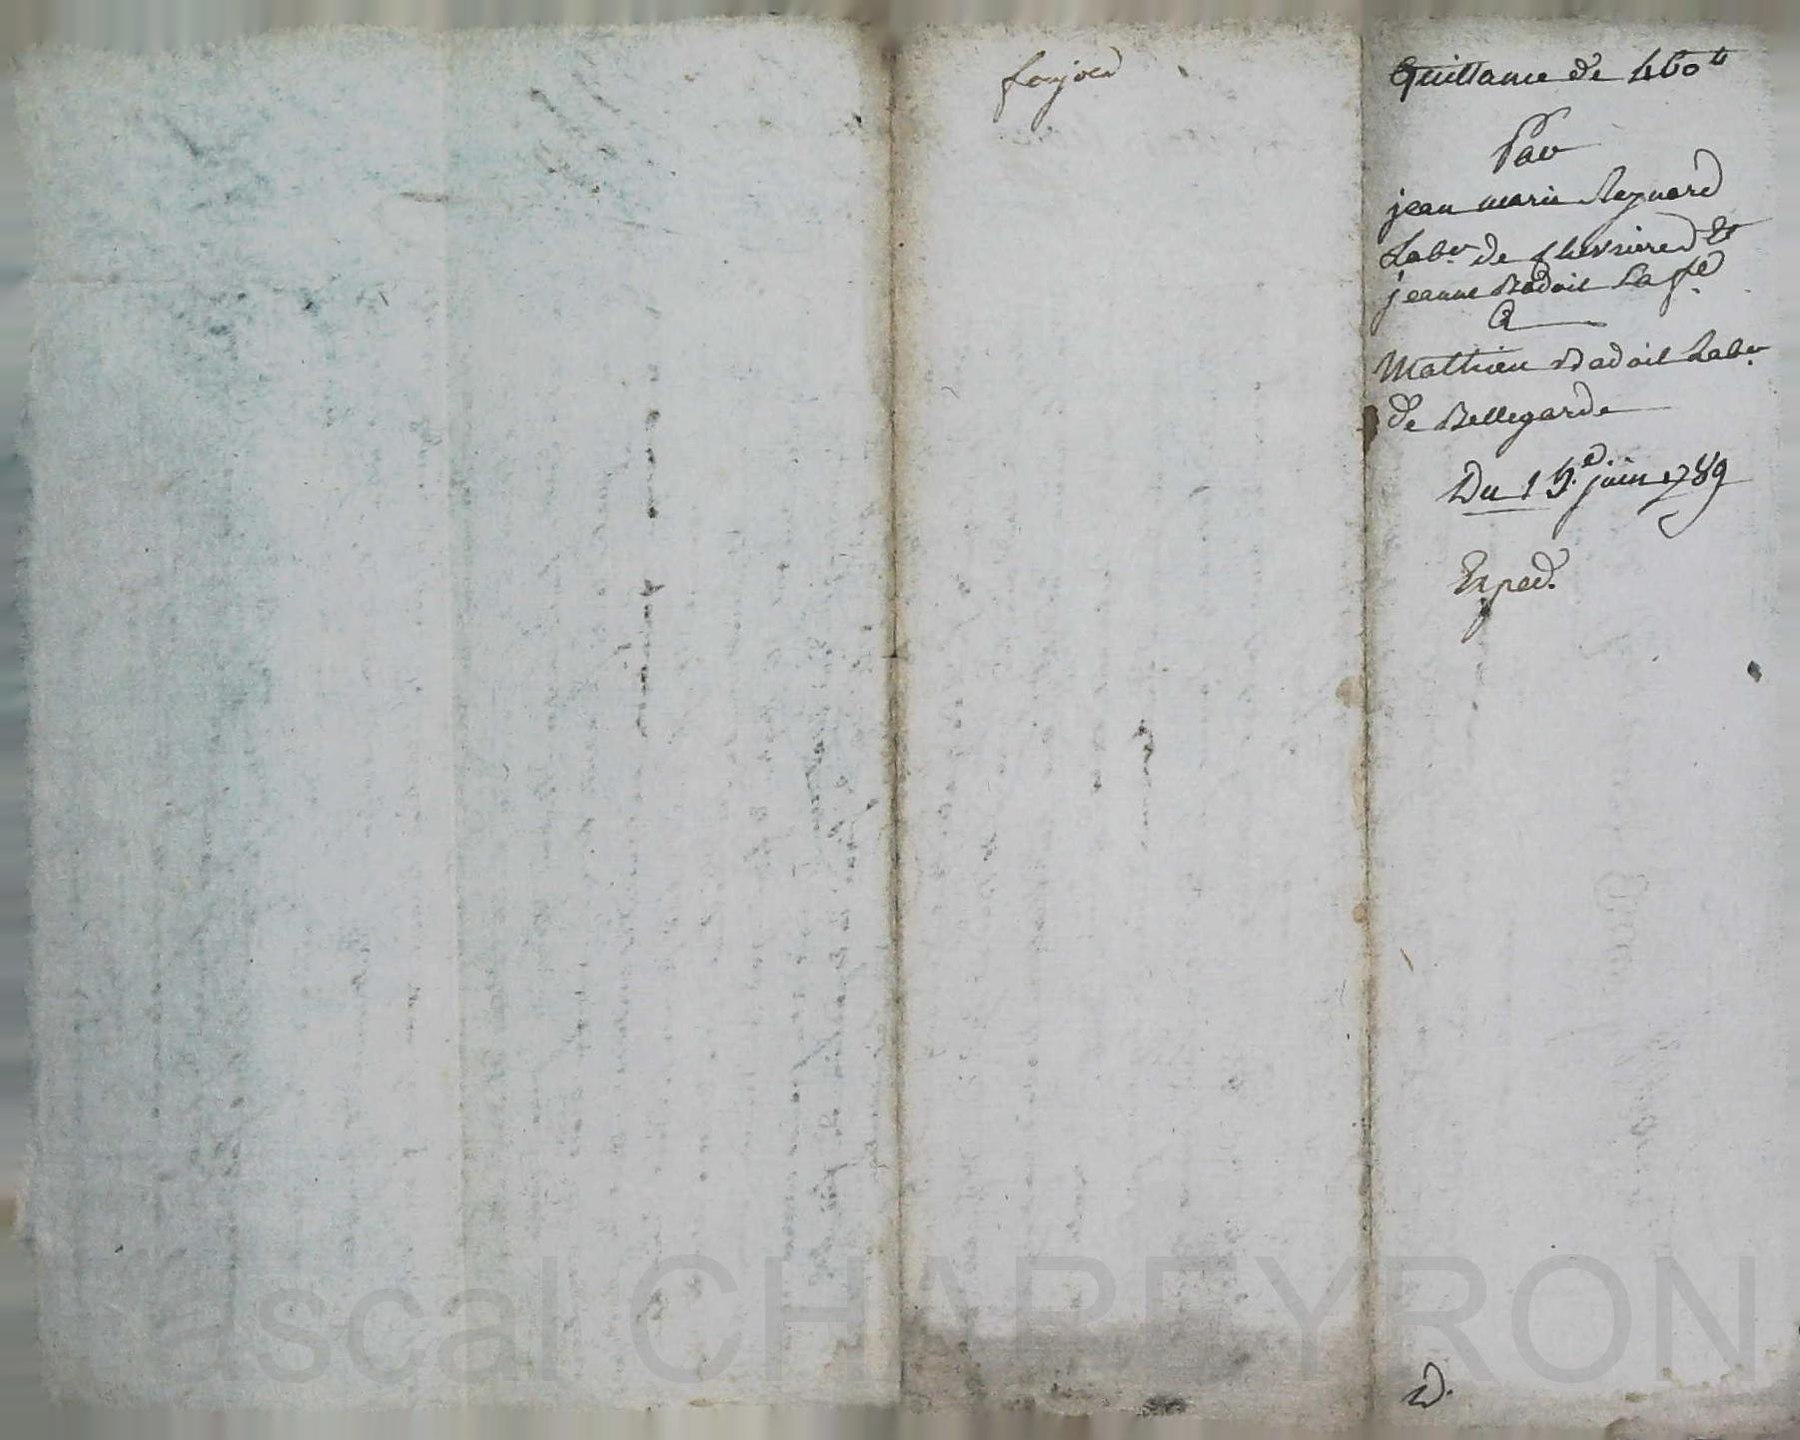 Quittance de 460 ₶
Par
jean marie Reynard
Labr. de Chevrieres &
jeanne Badoil sa fe.
A
Mathieu Badoil Labr.
de Bellegarde
Du 15e. juin 1789
Exped.
D.
ascal CHAREYRON